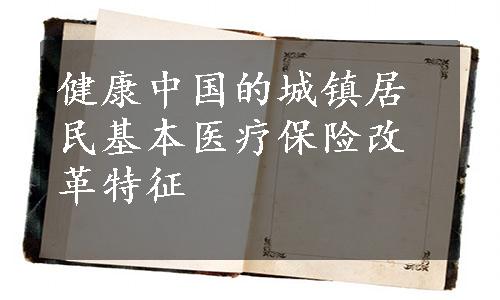 健康中国的城镇居
民基本医疗保险改
革特征